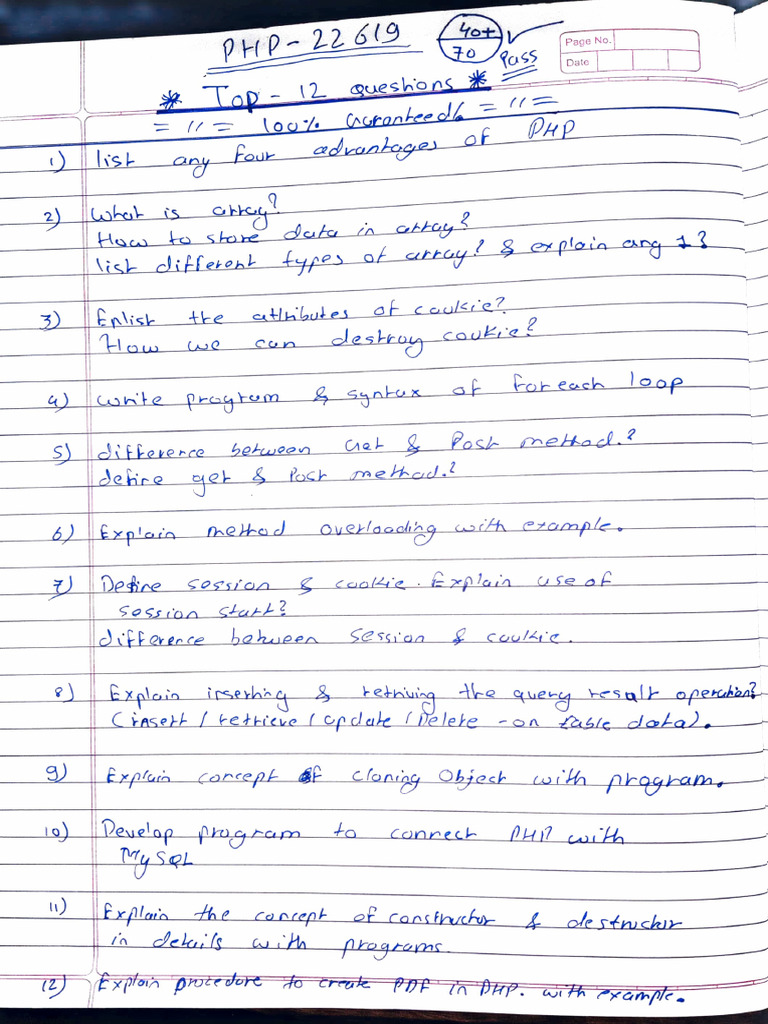 PHP - 22619
40+
70
Pass
Page No.
Date
* Top - 12 questions *
= 〃 = 100% Guaranteed = 〃 =
1) list any four advantages of PHP
2) What is array?
How to store data in array?
list different types of array? & explain any 1?
3) Enlist the attributes of cookie?
How we can destroy cookie?
4) write program & syntax of for each loop
5) difference between Get & Post method.?
define get & Post method.?
6) Explain method overloading with example.
7) Define session & cookie. Explain use of
session start?
difference between session & cookie.
8) Explain inserting & retriving the query result operation?
(insert / retrieve / update / Delete - on table data).
9) Explain concept of cloning Object with program.
10) Develop program to connect PHP with
MySQL
11) Explain the concept of constructor & destructor
in details with programs.
12) Explain procedure to create PDF in PHP. with example.